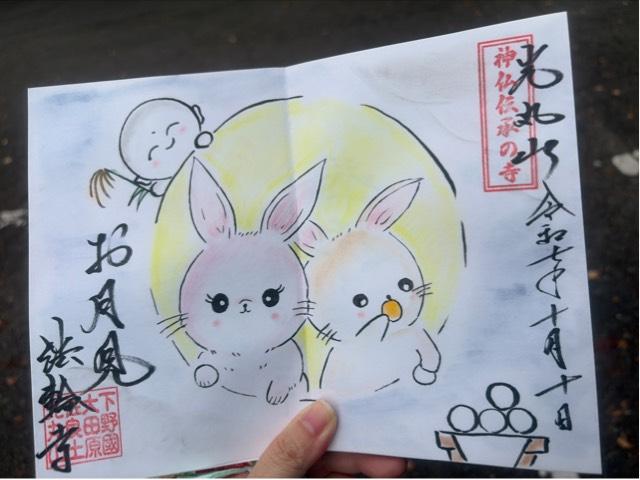 神仏伝承の寺
光丸山
令和七年十月十日
お月見
法輪寺
下野國
大田原